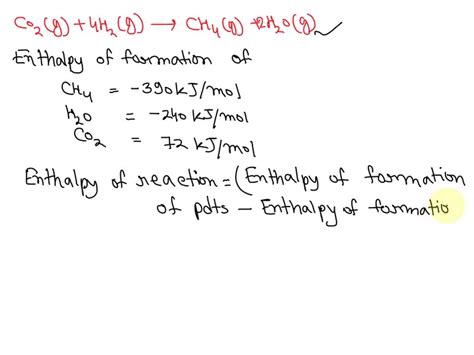 CO₂(g) + 4H₂(g) → CH₄(g) + 2H₂O(g)
Enthalpy of formation of
CH₄ = -390 kJ/mol
H₂O = -240 kJ/mol
CO₂ = 72 kJ/mol
Enthalpy of reaction = (Enthalpy of formation
of pdts - Enthalpy of formatio